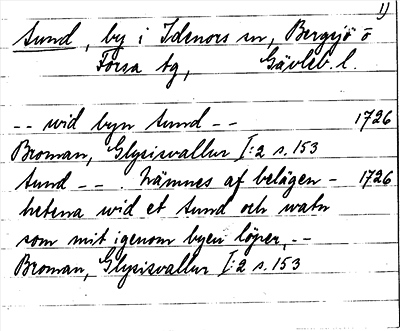 1)
Sund, by i Idenors sn, Bergsjö o
Forsa tg, Gävleb. l.
-- wid byn Sund -- 1726
Broman, Glysisvallur I:2 s. 153
Sund -- nämnes af belägen- 1726
hetena wid et Sund och watn
som mit igenom byen löper, --
Broman, Glysisvallur I:2 s. 153